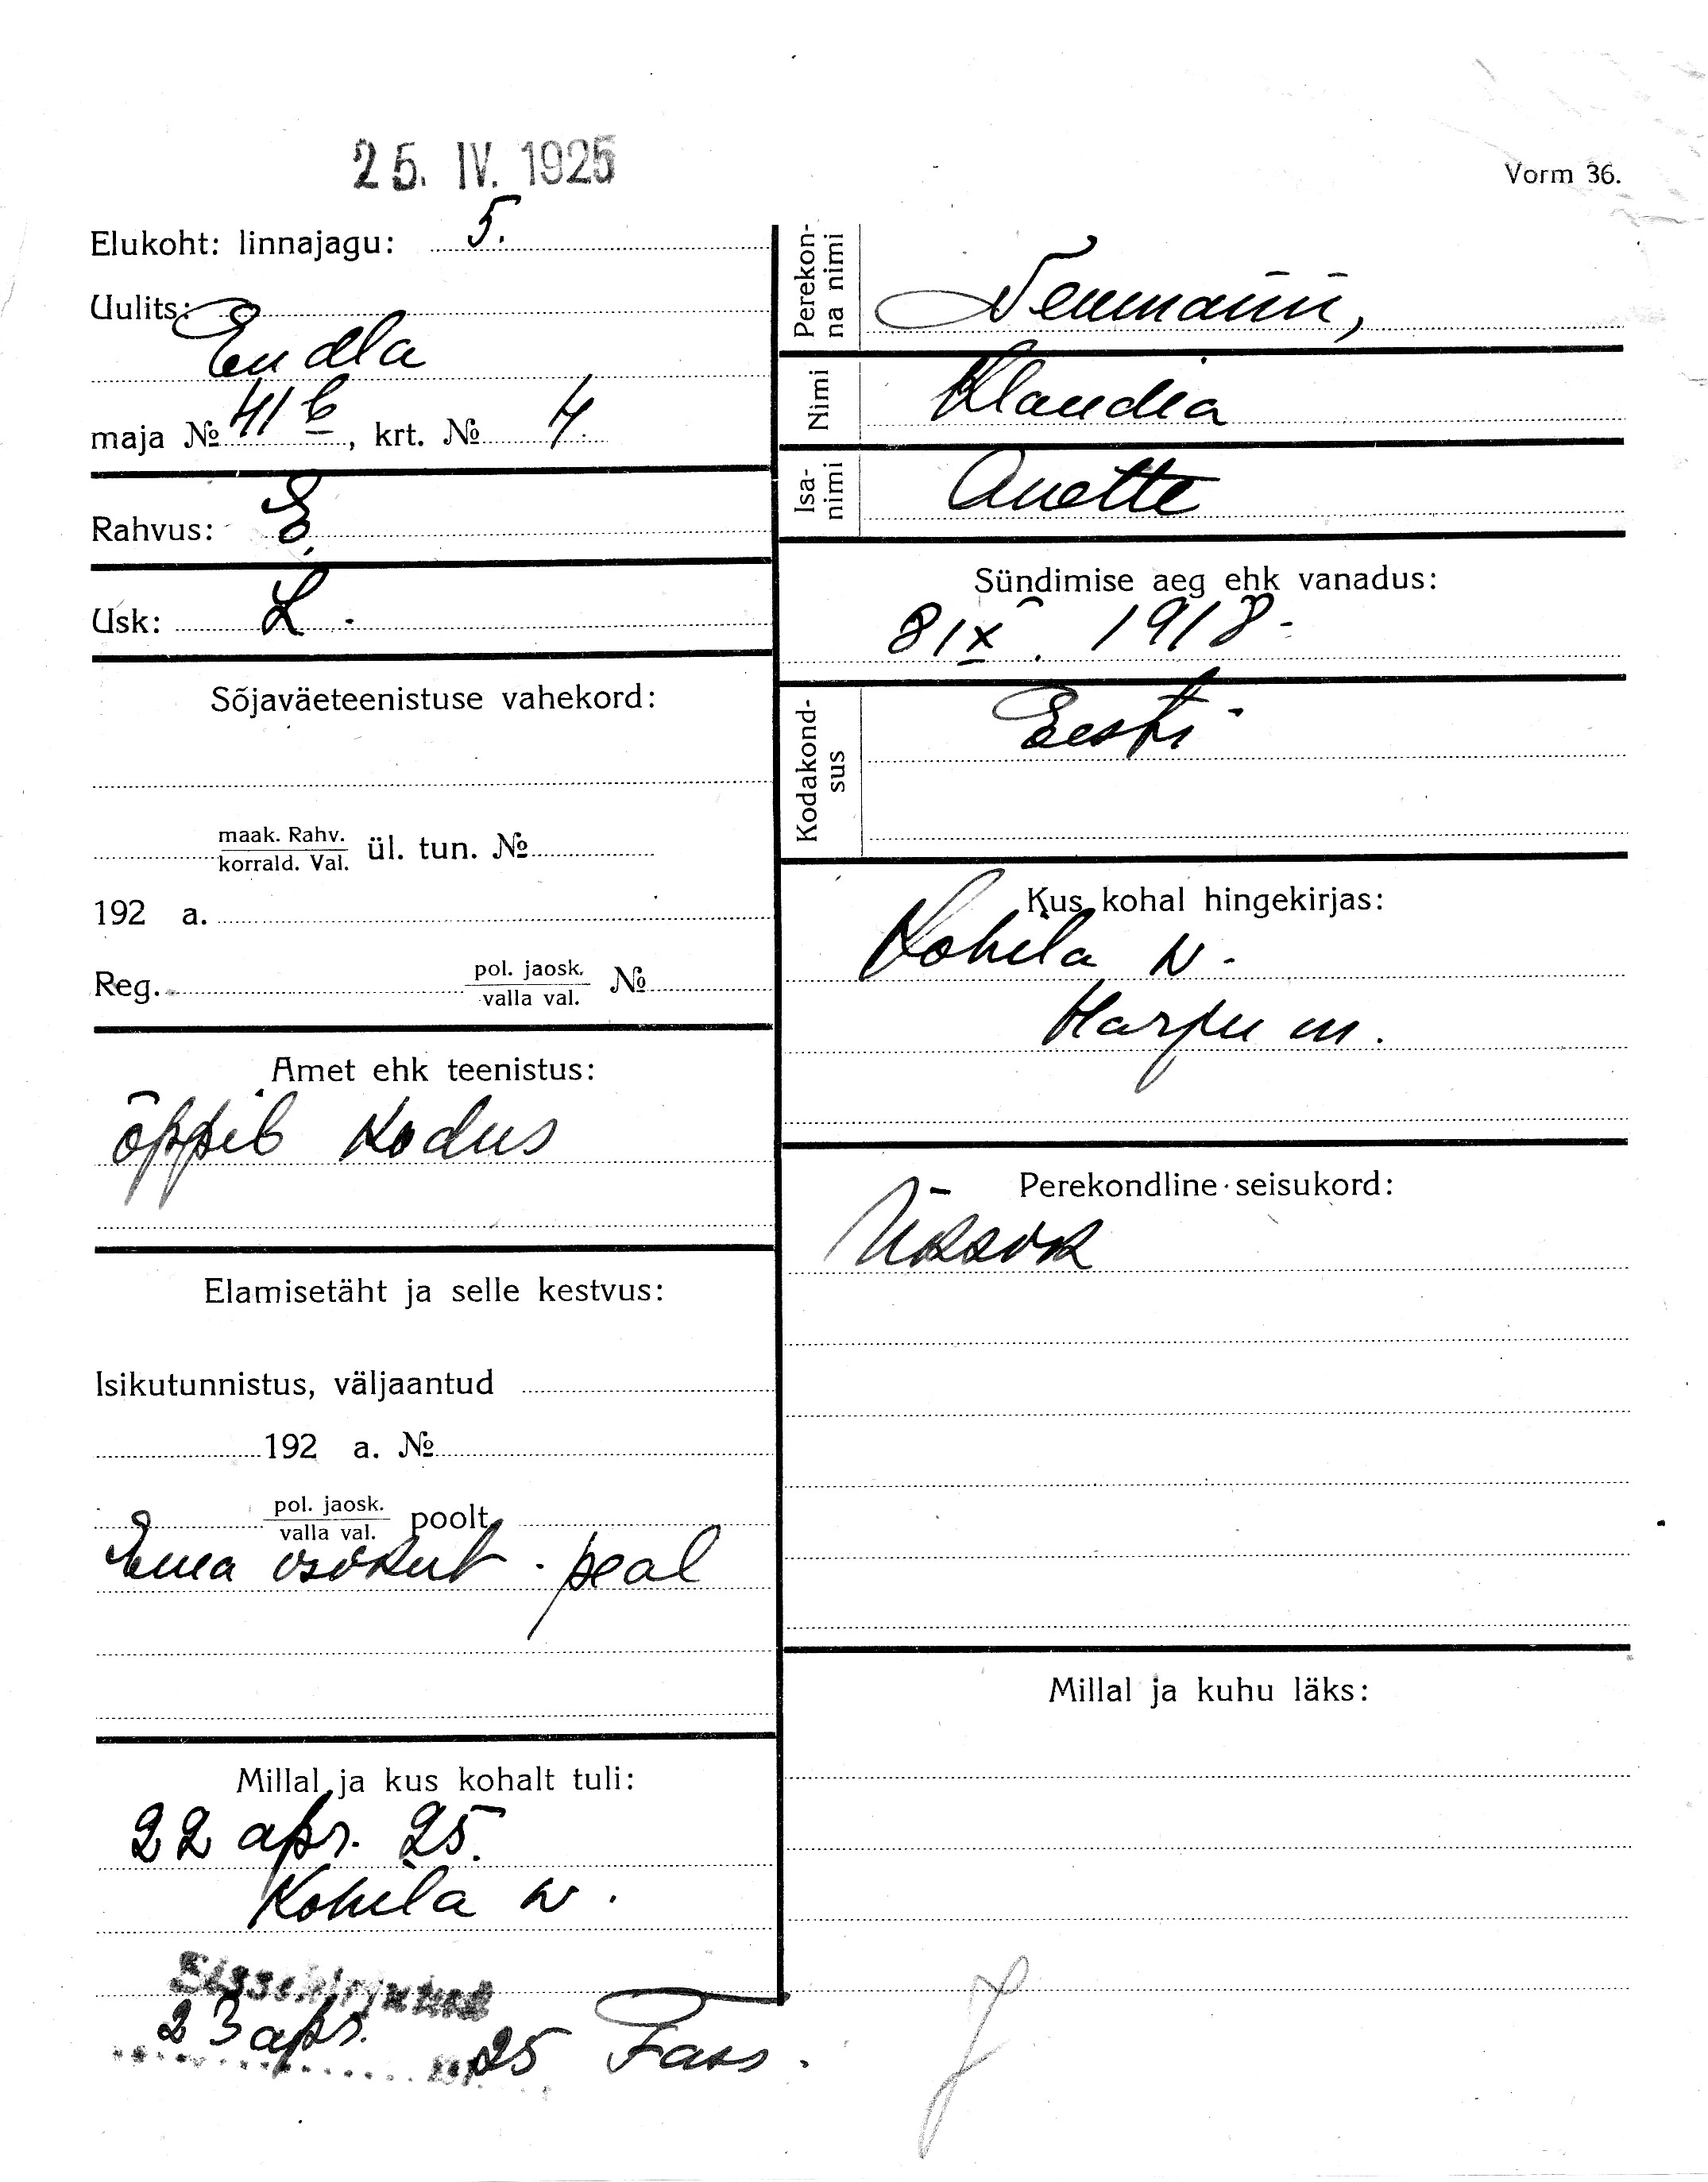 25. IV. 1925
Vorm 36.
Elukoht: linnajagu: 5.
Uulits:
Endla
maja № 41 b, krt. № 4
Rahvus: E.
Usk: L.
Sõjaväeteenistuse vahekord:
maak. Rahv.
korrald. Val. ül. tun. №
192 a.
Reg. pol. jaosk. №
valla val.
Amet ehk teenistus:
õppib kodus
Elamisetäht ja selle kestvus:
Isikutunnistus, väljaantud
192 a. №
pol. jaosk. poolt
valla val.
Ema isikut. peal
Millal ja kus kohalt tuli:
22 apr. 25.
Kohila w.
Sissekirjutud
23 apr. 25
Perekon-
na nimi
Neumann,
Nimi Klaudia
Isa-
nimi
Anette
Sündimise aeg ehk vanadus:
8 IX. 1918.
Kodakond-
sus
Eesti
Kus kohal hingekirjas:
Kohila w.
Harju m.
Perekondline seisukord:
Üksik
Millal ja kuhu läks: